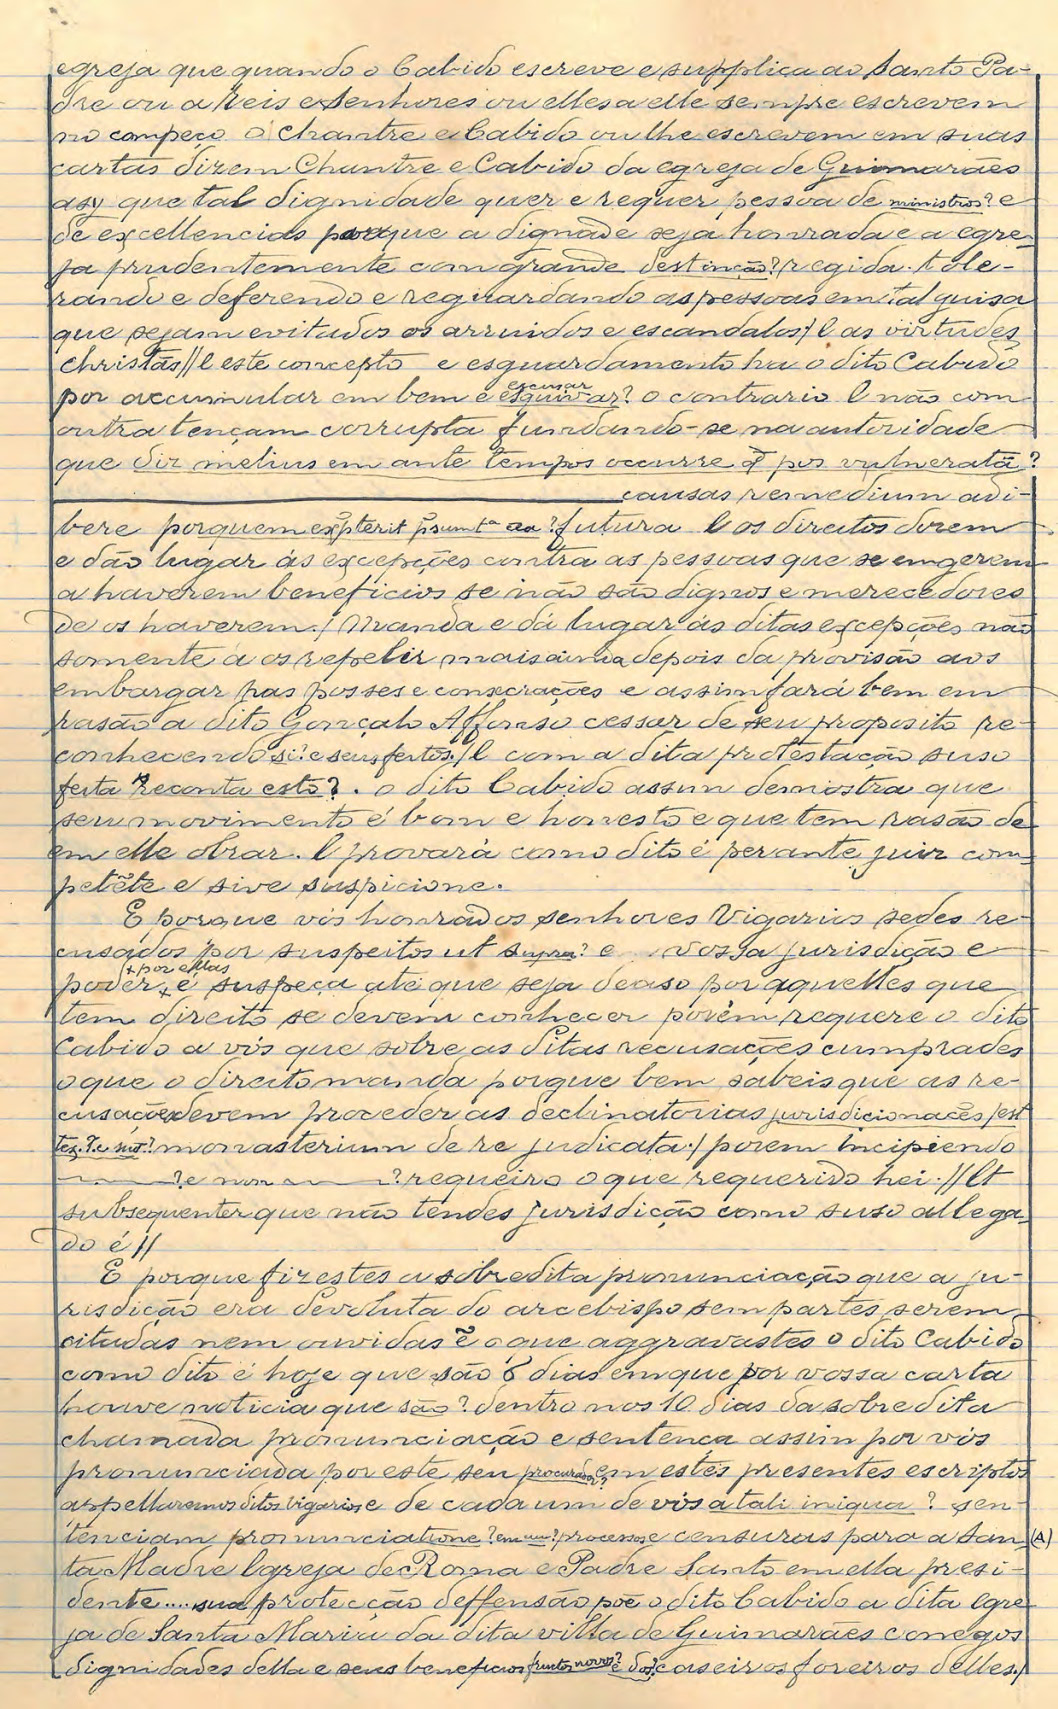 egreja que quando o Cabido escreve e suppliça ao Santo Pa-
dre ou a Reis e Senhores ou elles a elle sempre escrevem
no começo o Chantre e Cabido ou lhe escrevem em suas
cartas dizem Chantre e Cabido da egreja de Guimarães
asy que tal dignidade quer e requer pessoa de ministrios? e
de excellencias porque a dignade seja honrada e a egre-
ja prudentemente com grande destinção? regida. tole-
rando e deferendo e reguardando as pessoas em tal guisa
que sejam evitados os arruidos e escandalos/ E as virtudes
Christãs// E este concepto e esguardamento ha o dito Cabido
por accumular em bem e esquivar? escusar o contrario E não com
outra tençam corrupta fundando-se na autoridade
que diz melius em ante tempos occurre q̃ pos vulneratã?
causas remedium adi-
bere porquem exp̃terit p̃sumta aa? futura E os direitos dizem
e dão lugar ás excepções contra as pessoas que se emgerem
a haverem beneficios se não são dignos e merecedores
de os haverem./ Manda e dá lugar ás ditas excepções não
somente a os repelir mais ainda depois da provisão aos
embargar nas posses e consecrações e assim fará bem em
rasão a dito Gonçalo Affonso cessar de seu proposito re-
conhecendo si? e seus feitos./ E com a dita protestação suso
feita reconta esto? . o dito Cabido assim demostra que
seu movimento é bom e honesto e que tem rasão de
em elle obrar. E provará como dito é perante juiz com-
petẽte e sive suspicione.
E porque vós honrados senhores Vigarios sedes re-
cusados por suspeitos ut supra? e vossa jurisdição e
poder + é (+ por ellas suspeça até que seja deciso por aquelles que
tem direito se devem conhecer porém requere o dito
Cabido a vós que sobre as ditas recusações cumprades
o que o direito manda porque bem sabeis que as re-
cusações devem proceder as declinatorias jurisdicionacẽs/est
tex. Te no? monasterium de re judicata./ porem incipiendo
? e non ? requeiro o que requerido hei.// Et
subsequenter que não tendes jurisdição como suso allega-
do é//
E porque fizestes a sobredita pronunciação que a ju-
risdição era devoluta do arcebispo sem partes serem
citadas nem ouvidas ẽ o que aggravastes o dito Cabido
como dito é hoje que são 6 dias em que por vossa carta
houve noticia que são? dentro nos 10 dias da sobredita
chamada pronunciação e sentença assim por vós
pronunciada por este seu procurador? em estes presentes escriptos
appellaremos ditos vigarios e de cada um de vós a tali iniqua ? sen-
tenciam pronunciatione? em um? processo e censuras para a San- (A)
ta Madre Egreja de Roma e Padre Santo em ella presi-
dente .... sua protecção deffensão põe o dito Cabido a dita egre
ja de Santa Maria da dita villa de Guimarães conegos
dignidades della e seus beneficios fructos novos? e dos? caseiros foreiros delles./